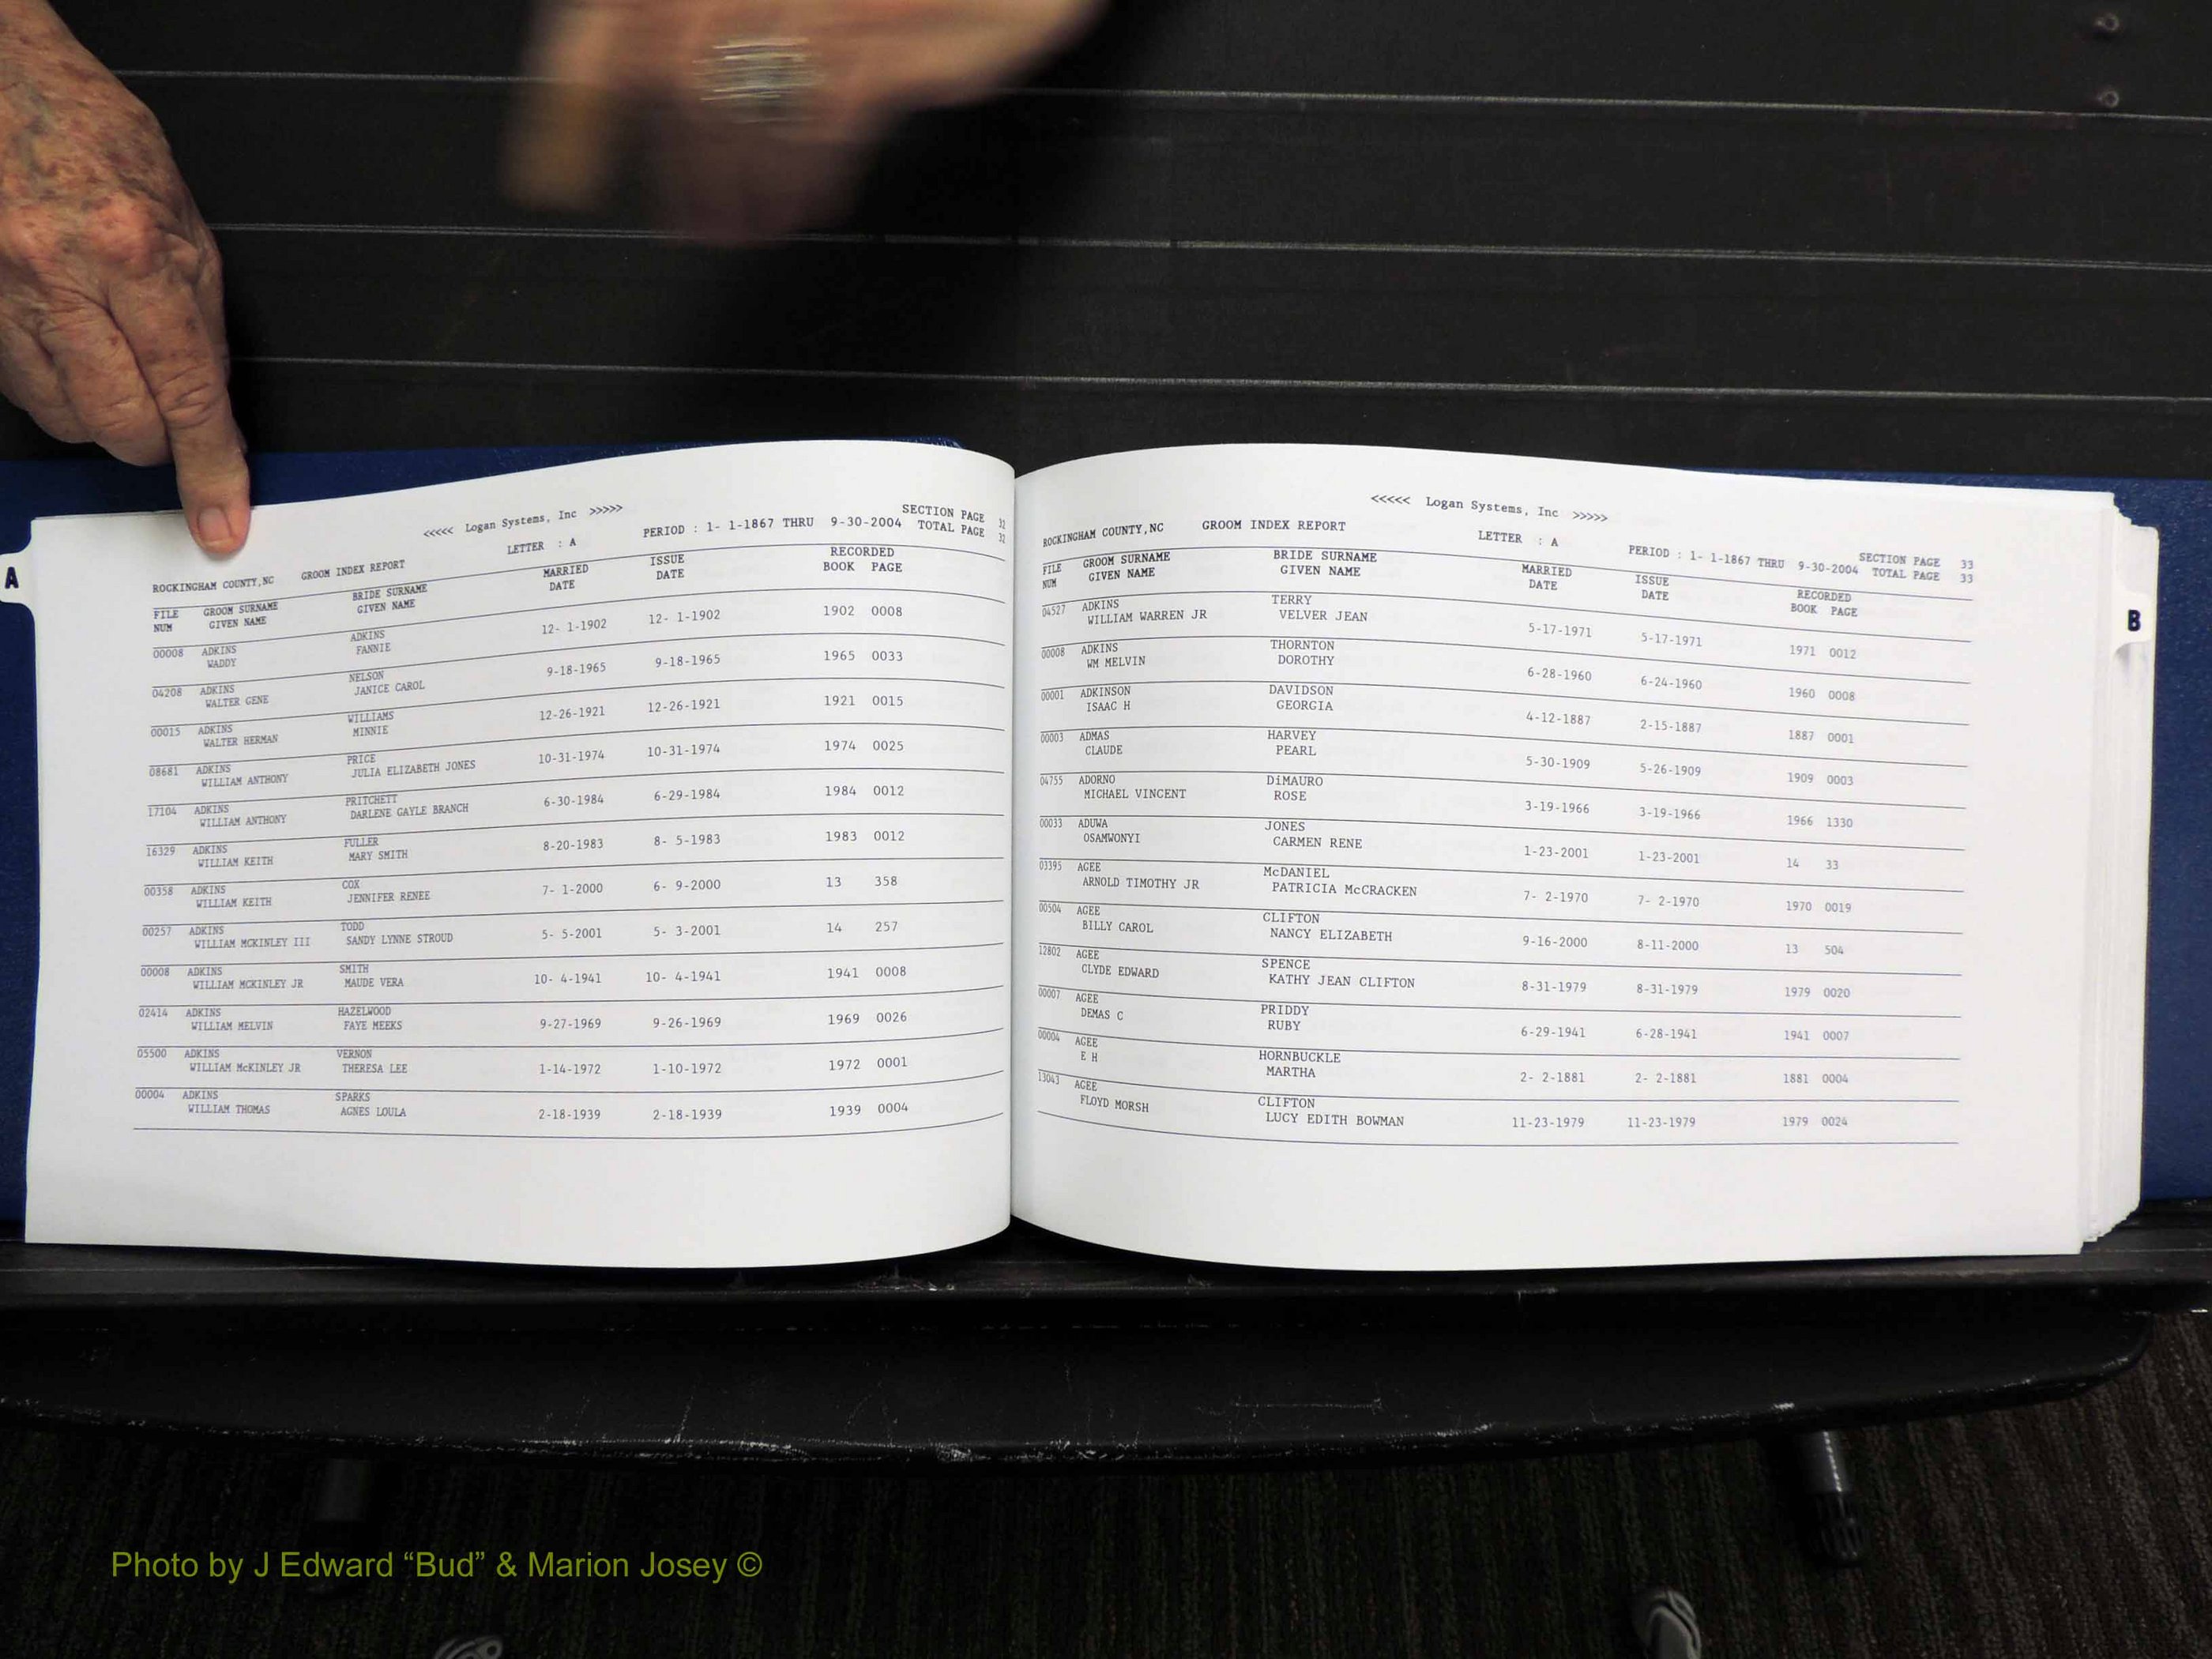 A
<<<<< Logan Systems, Inc >>>>>
SECTION PAGE 32
ROCKINGHAM COUNTY,NC GROOM INDEX REPORT LETTER : A PERIOD : 1- 1-1867 THRU 9-30-2004 TOTAL PAGE 32
FILE GROOM SURNAME BRIDE SURNAME MARRIED ISSUE RECORDED
NUM GIVEN NAME GIVEN NAME DATE DATE BOOK PAGE
00008 ADKINS ADKINS 12- 1-1902 12- 1-1902 1902 0008
WADDY FANNIE
04208 ADKINS NELSON 9-18-1965 9-18-1965 1965 0033
WALTER GENE JANICE CAROL
00015 ADKINS WILLIAMS 12-26-1921 12-26-1921 1921 0015
WALTER HERMAN MINNIE
08681 ADKINS PRICE 10-31-1974 10-31-1974 1974 0025
WILLIAM ANTHONY JULIA ELIZABETH JONES
17104 ADKINS PRITCHETT 6-30-1984 6-29-1984 1984 0012
WILLIAM ANTHONY DARLENE GAYLE BRANCH
16329 ADKINS FULLER 8-20-1983 8- 5-1983 1983 0012
WILLIAM KEITH MARY SMITH
00358 ADKINS COX 7- 1-2000 6- 9-2000 13 358
WILLIAM KEITH JENNIFER RENEE
00257 ADKINS TODD 5- 5-2001 5- 3-2001 14 257
WILLIAM MCKINLEY III SANDY LYNNE STROUD
00008 ADKINS SMITH 10- 4-1941 10- 4-1941 1941 0008
WILLIAM MCKINLEY JR MAUDE VERA
02414 ADKINS HAZELWOOD 9-27-1969 9-26-1969 1969 0026
WILLIAM MELVIN FAYE MEEKS
05500 ADKINS VERNON 1-14-1972 1-10-1972 1972 0001
WILLIAM McKINLEY JR THERESA LEE
00004 ADKINS SPARKS 2-18-1939 2-18-1939 1939 0004
WILLIAM THOMAS AGNES LOULA
<<<<< Logan Systems, Inc >>>>>
SECTION PAGE 33
ROCKINGHAM COUNTY,NC GROOM INDEX REPORT LETTER : A PERIOD : 1- 1-1867 THRU 9-30-2004 TOTAL PAGE 33
FILE GROOM SURNAME BRIDE SURNAME MARRIED ISSUE RECORDED
NUM GIVEN NAME GIVEN NAME DATE DATE BOOK PAGE
04527 ADKINS TERRY 5-17-1971 5-17-1971 1971 0012
WILLIAM WARREN JR VELVER JEAN
00008 ADKINS THORNTON 6-28-1960 6-24-1960 1960 0008
WM MELVIN DOROTHY
00001 ADKINSON DAVIDSON 4-12-1887 2-15-1887 1887 0001
ISAAC H GEORGIA
00003 ADMAS HARVEY 5-30-1909 5-26-1909 1909 0003
CLAUDE PEARL
04755 ADORNO DiMAURO 3-19-1966 3-19-1966 1966 1330
MICHAEL VINCENT ROSE
00033 ADUWA JONES 1-23-2001 1-23-2001 14 33
OSAMWONYI CARMEN RENE
03395 AGEE McDANIEL 7- 2-1970 7- 2-1970 1970 0019
ARNOLD TIMOTHY JR PATRICIA McCRACKEN
00504 AGEE CLIFTON 9-16-2000 8-11-2000 13 504
BILLY CAROL NANCY ELIZABETH
12802 AGEE SPENCE 8-31-1979 8-31-1979 1979 0020
CLYDE EDWARD KATHY JEAN CLIFTON
00007 AGEE PRIDDY 6-29-1941 6-28-1941 1941 0007
DEMAS C RUBY
00004 AGEE HORNBUCKLE 2- 2-1881 2- 2-1881 1881 0004
E H MARTHA
13043 AGEE CLIFTON 11-23-1979 11-23-1979 1979 0024
FLOYD MORSH LUCY EDITH BOWMAN
B
Photo by J Edward “Bud” & Marion Josey ©